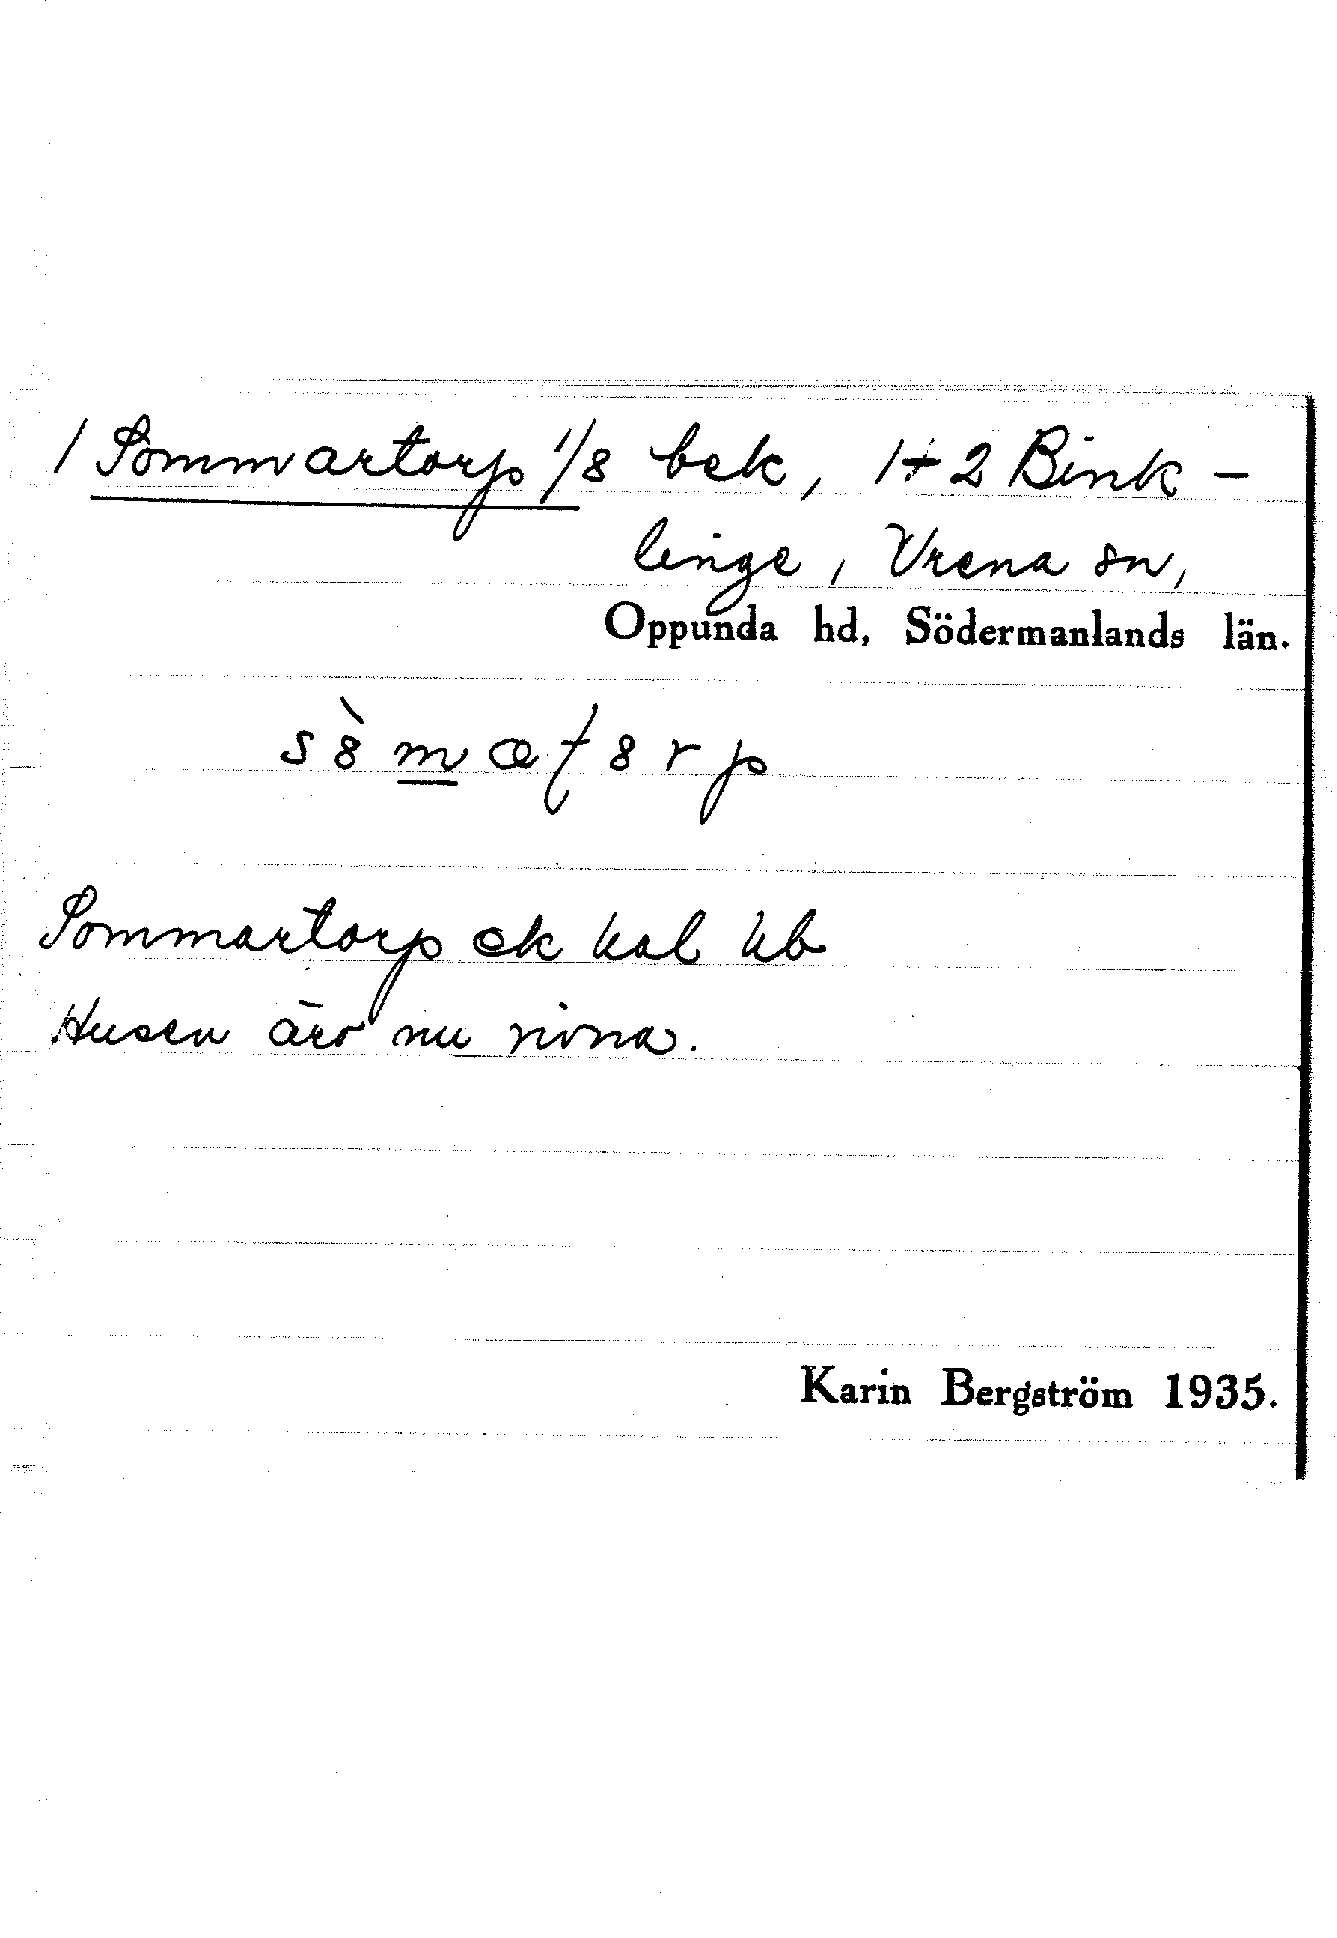 / Sommartorp 1/8 bek, 1+2 Bink-
linge, Vrena sn,
Oppunda hd, Södermanlands län.
Sommartorp ek kal kb
Husen äro nu rivna.
Karin Bergström 1935.